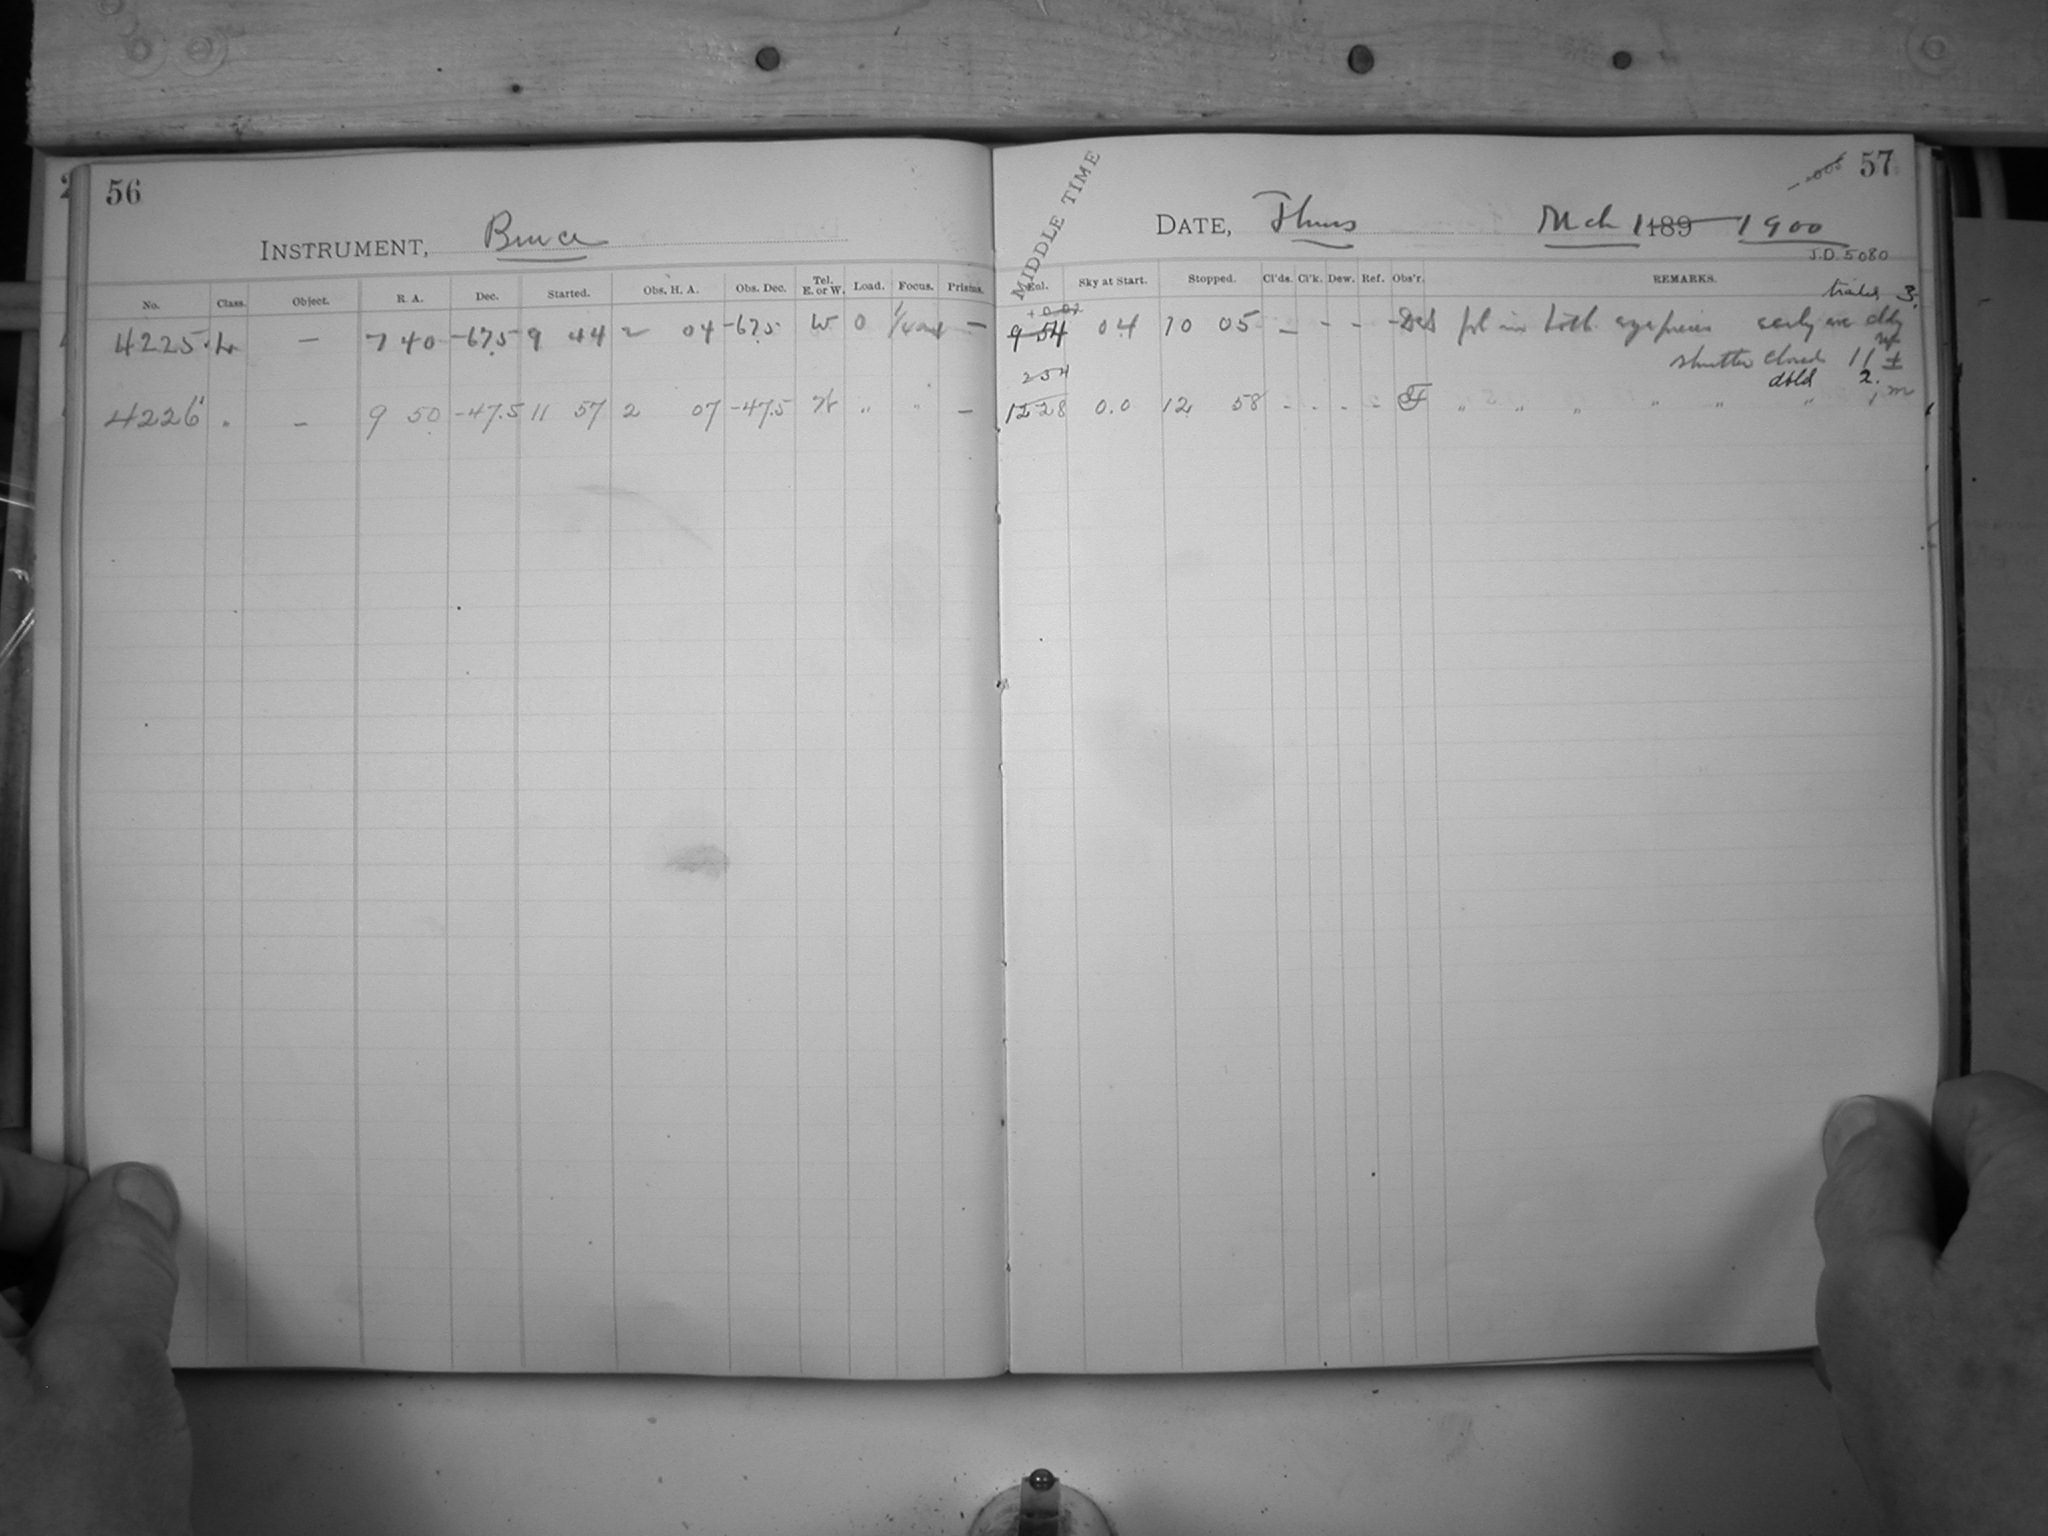 56
INSTRUMENT, Bruce
No. Class. Object. R. A. Dec. Started. Obs. H. A. Obs. Dec. Tel. E. or W. Load. Focus. Prisms.
4225 L — 7 40 -67.5 9 44 2 04 -67.5 W 0 —
4226 " — 9 50 -47.5 11 57 2 07 -47.5 W " " —
57
MIDDLE TIME
DATE, Thurs Mch 1 189 1900
J.D. 5080
Exl. Sky at Start. Stopped. Cl'ds. Cl'k. Dew. Ref. Obs'r. REMARKS.
trailed 3.
+0.02
9 54 04 10 05 — - - - fol in both eyepieces early
shutter closed 11 ±
254
dbld 2.
12 28 0.0 12 58 - - - - " " " " " "